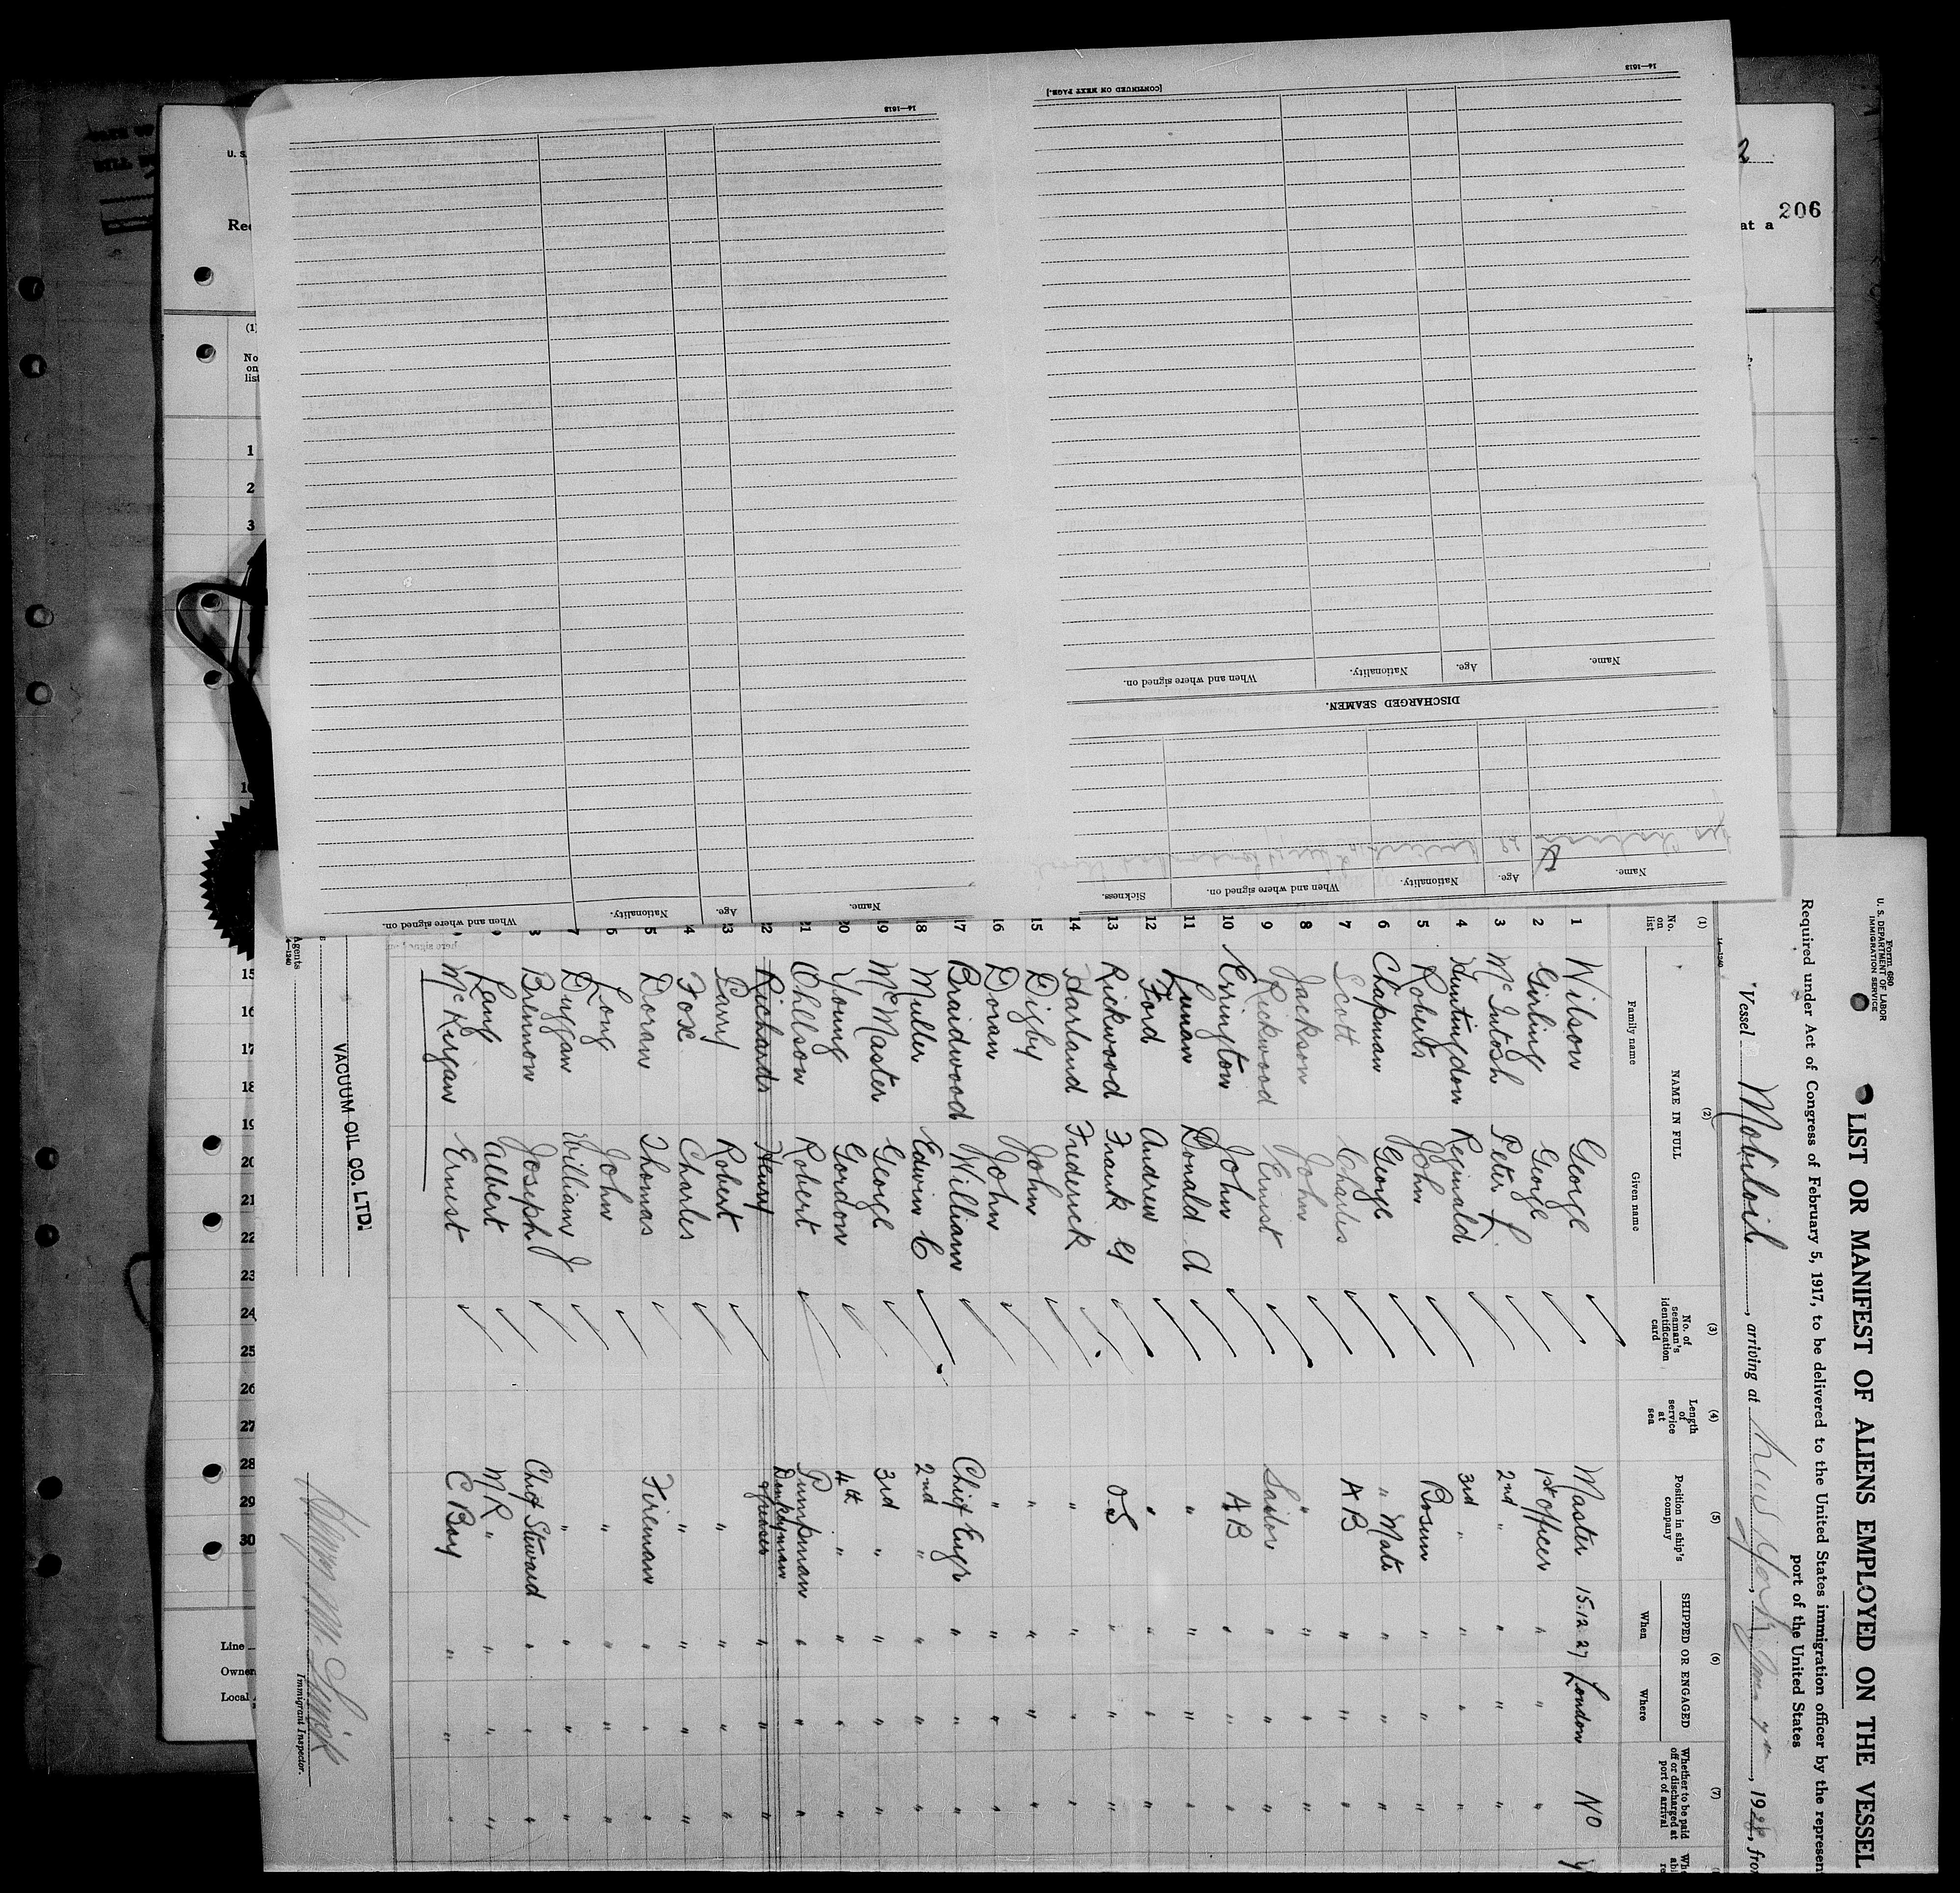 Form 680
U. S. DEPARTMENT OF LABOR
IMMIGRATION SERVICE
LIST OR MANIFEST OF ALIENS EMPLOYED ON THE VESSEL
Required under Act of Congress of February 5, 1917, to be delivered to the United States immigration officer by the represen
port of the United States
Vessel Mobiloil, arriving at New York, 1928, fro
14—1240
(1) (2) (3) (4) (5) (6) (7)
No. on list
NAME IN FULL
Family name Given name
No. of seaman's identification card
Length of service at sea
Position in ship's company
SHIPPED OR ENGAGED
When Where
Whether to be paid off or discharged at port of arrival
1 Wilson George Master 15.12.27 London NO
2 Girling George 1st Officer " " "
3 McIntosh Peter 2nd " " " "
4 Huntingdon Reginald 3rd " " " "
5 Roberts John Bosun " " "
6 Chapman George " Mate " " "
7 Scott Charles A B " " "
8 Jackson John " " " "
9 Rickwood Ernest Sailor " " "
10 Errington John A B " " "
11 Lunan Donald A " " " "
12 Ford Andrew " " " "
13 Rickwood Frank G O S " " "
14 Harland Frederick " " " "
15 Digby John " " " "
16 Doran John " " " "
17 Braidwood William Chief Engr " " "
18 Muller Edwin C 2nd " " " "
19 McMaster George 3rd " " " "
20 Young Gordon 4th " " " "
21 Ohllson Robert Pumpman " " "
22 Richards Henry Donkeyman " " "
23 Parry Robert " " " "
4 Fox Charles " " " "
5 Doran Thomas Fireman " " "
6 Long John " " " "
7 Duggan William J " " " "
8 Brennon Joseph Chief Steward " " "
Lang Albert M R " " " "
McKirgan Ernest C Boy " " "
VACUUM OIL CO. LTD.
Agents
Immigrant Inspector.
14—1613
[CONTINUED ON NEXT PAGE.]
14—1613
Name. Age. Nationality. When and where signed on. Sickness.
DISCHARGED SEAMEN.
Name. Age. Nationality. When and where signed on.
Name. Age. Nationality. When and where signed on.
2
206
at a
U. S.
Rec
(1)
No
on
list
1
2
3
10
15
16
17
18
19
20
21
22
23
24
25
26
27
28
29
30
Line
Owner
Local